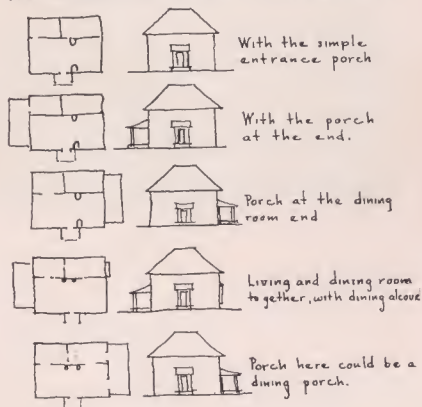 With the simple
entrance porch
With the porch
at the end.
Porch at the dining
room end
Living and dining room
together, with dining alcove
Porch here could be a
dining porch.